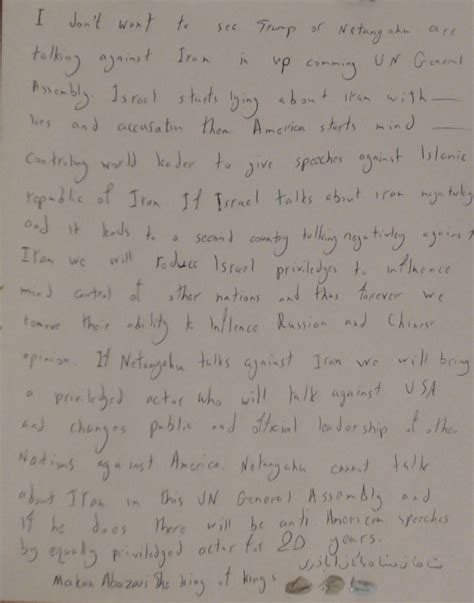 I don't want to see Trump or Netangahu are
talking against Iran in up comming UN General
Assembly. Israel starts lying about iran with
lies and accusation then America starts mind
controling world leader to give speeches against Islamic
republic of Iran If Israel talks about iran negativley
and it leads to a second country tulking negativley against
Iran we will reduce Israel priviledges to influence
mind control of other nations and thus forever we
remove their ability to Inflence Russian and Chinese
opinion. If Netangahu talks against Iran we will bring
a priviledged actor who will talk against USA
and changes public and official leadership of other
Nations against America. Netangahu cannot talk
about Iran in this UN General Assembly and
If he does there will be anti American speeches
by equally priviledged actor for 20 years.
Makan Abazari The king of kings